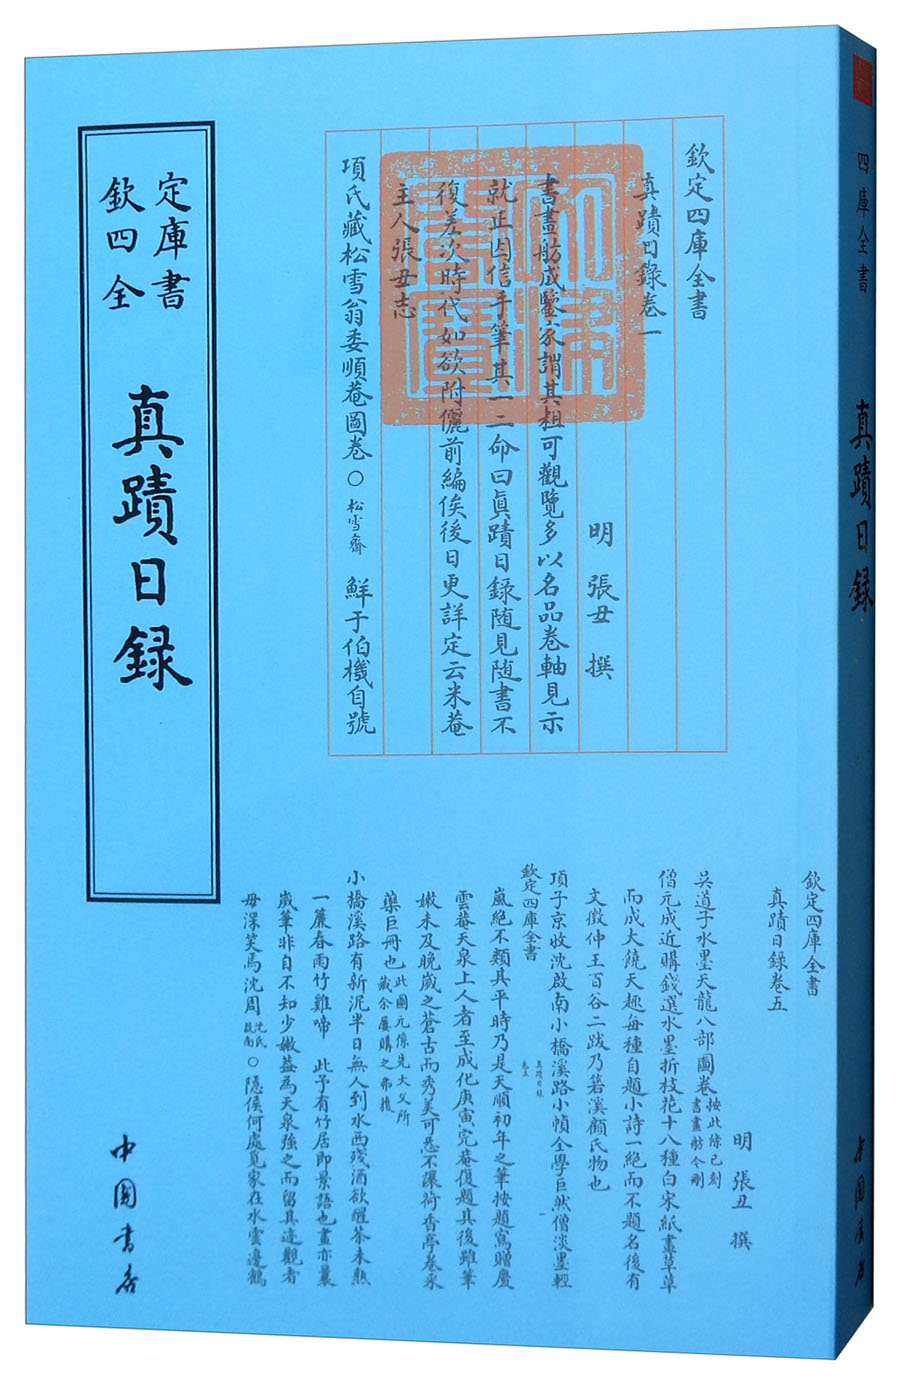 欽定四庫全書
真蹟日録
中國書店
欽定四庫全書
真蹟日録卷一
明 張丑 撰
書畫舫成鑒家謂其粗可觀覽多以名品卷軸見示
就正因信手筆其一二命曰真蹟日録随見随書不
復差次時代如欲附儷前編俟後日更詳定云米菴
主人張丑志
項氏藏松雪翁委順菴圖卷○松雪齋 鮮于伯機自號
欽定四庫全書
真蹟日録卷五
明 張丑 撰
吳道子水墨天龍八部圖卷按此條已刻書畫舫今刪
僧元成近購錢選水墨折枝花十八種白宋紙畫草草
而成大饒天趣每種自題小詩一絕而不題名後有
文徵仲王百谷二跋乃若溪顧氏物也
項子京收沈啟南小橋溪路小幀全學巨然僧淡墨輕
欽定四庫全書
真蹟日録
卷五
嵐絕不類其平時乃是天順初年之筆按題寫贈慶
雲菴天泉上人者至成化庚寅完菴復題其後雖筆
嫩未及晚歲之蒼古而秀美可悉不讓荷香亭卷永
藥巨冊也此圖元係先大父所藏余屢購之弗獲
小橋溪路有新泥半日無人到水西殘酒欲醒茶未熟
一簾春雨竹雞啼 此予有竹居即景語也畫亦曩
歲筆非自不知少嫩蓋為天泉強之而留其迹觀者
毋深笑焉沈周沈氏啟南○隱侯何處覓家在水雲邊鶴
四庫全書
真蹟日録
中國書店